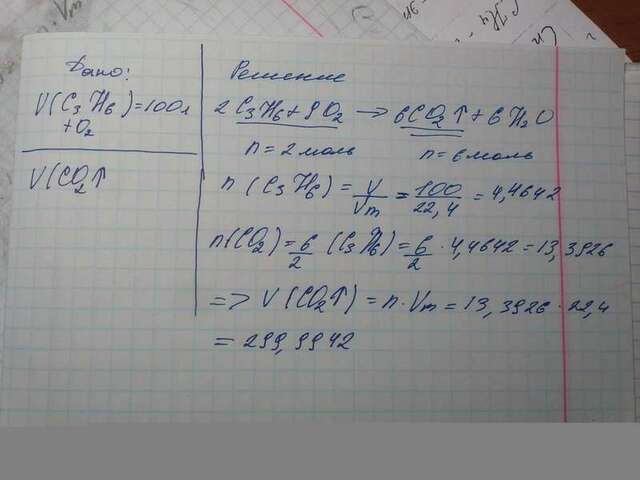 Дано:
V(C3H6)=100л
+O2
V(CO2↑
Решение
2C3H6+9O2 → 6CO2↑+6H2O
n=2моль n=6моль
n(C3H6)=V/Vm=100/22,4=4,4642
n(CO2)=6/2(C3H6)=6/2·4,4642=13,3926
=> V(CO2↑)=n·Vm=13,3926·22,4
=299,9942